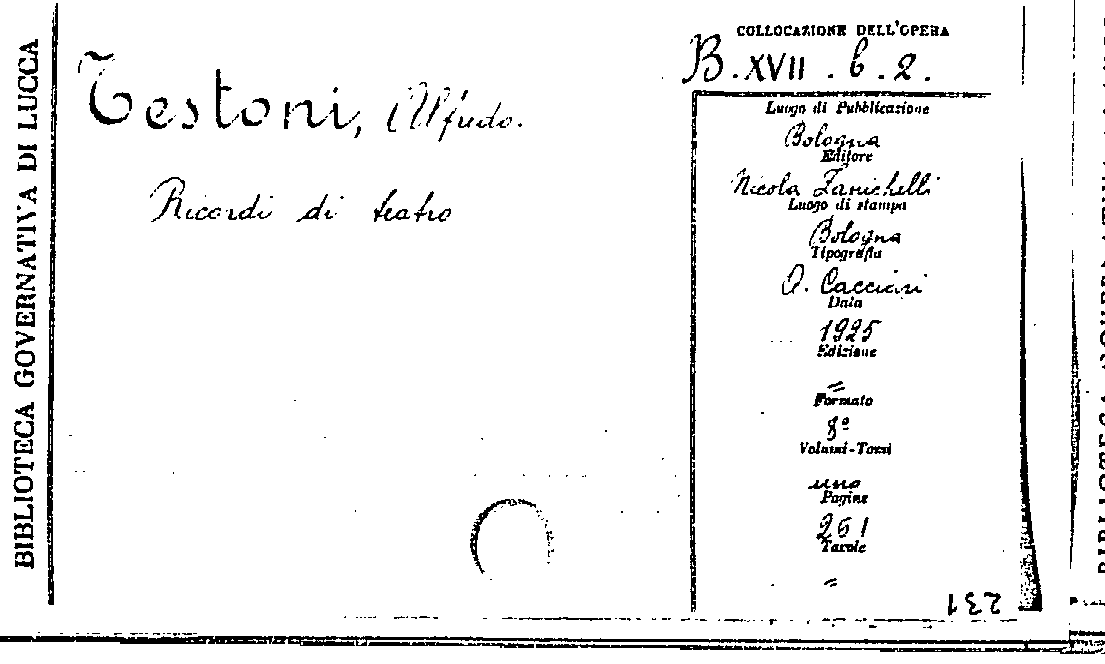 BIBLIOTECA GOVERNATIVA DI LUCCA
Testoni, Alfredo.
Ricordi di teatro
COLLOCAZIONE DELL'OPERA
B. XVII . b . 2 .
Luogo di Pubblicazione
Bologna
Editore
Nicola Zanichelli
Luogo di stampa
Bologna
Tipografia
A. Cacciari
Data
1925
Edizione
=
Formato
8º
Volumi-Tomi
uno
Pagine
261
Tavole
=
231